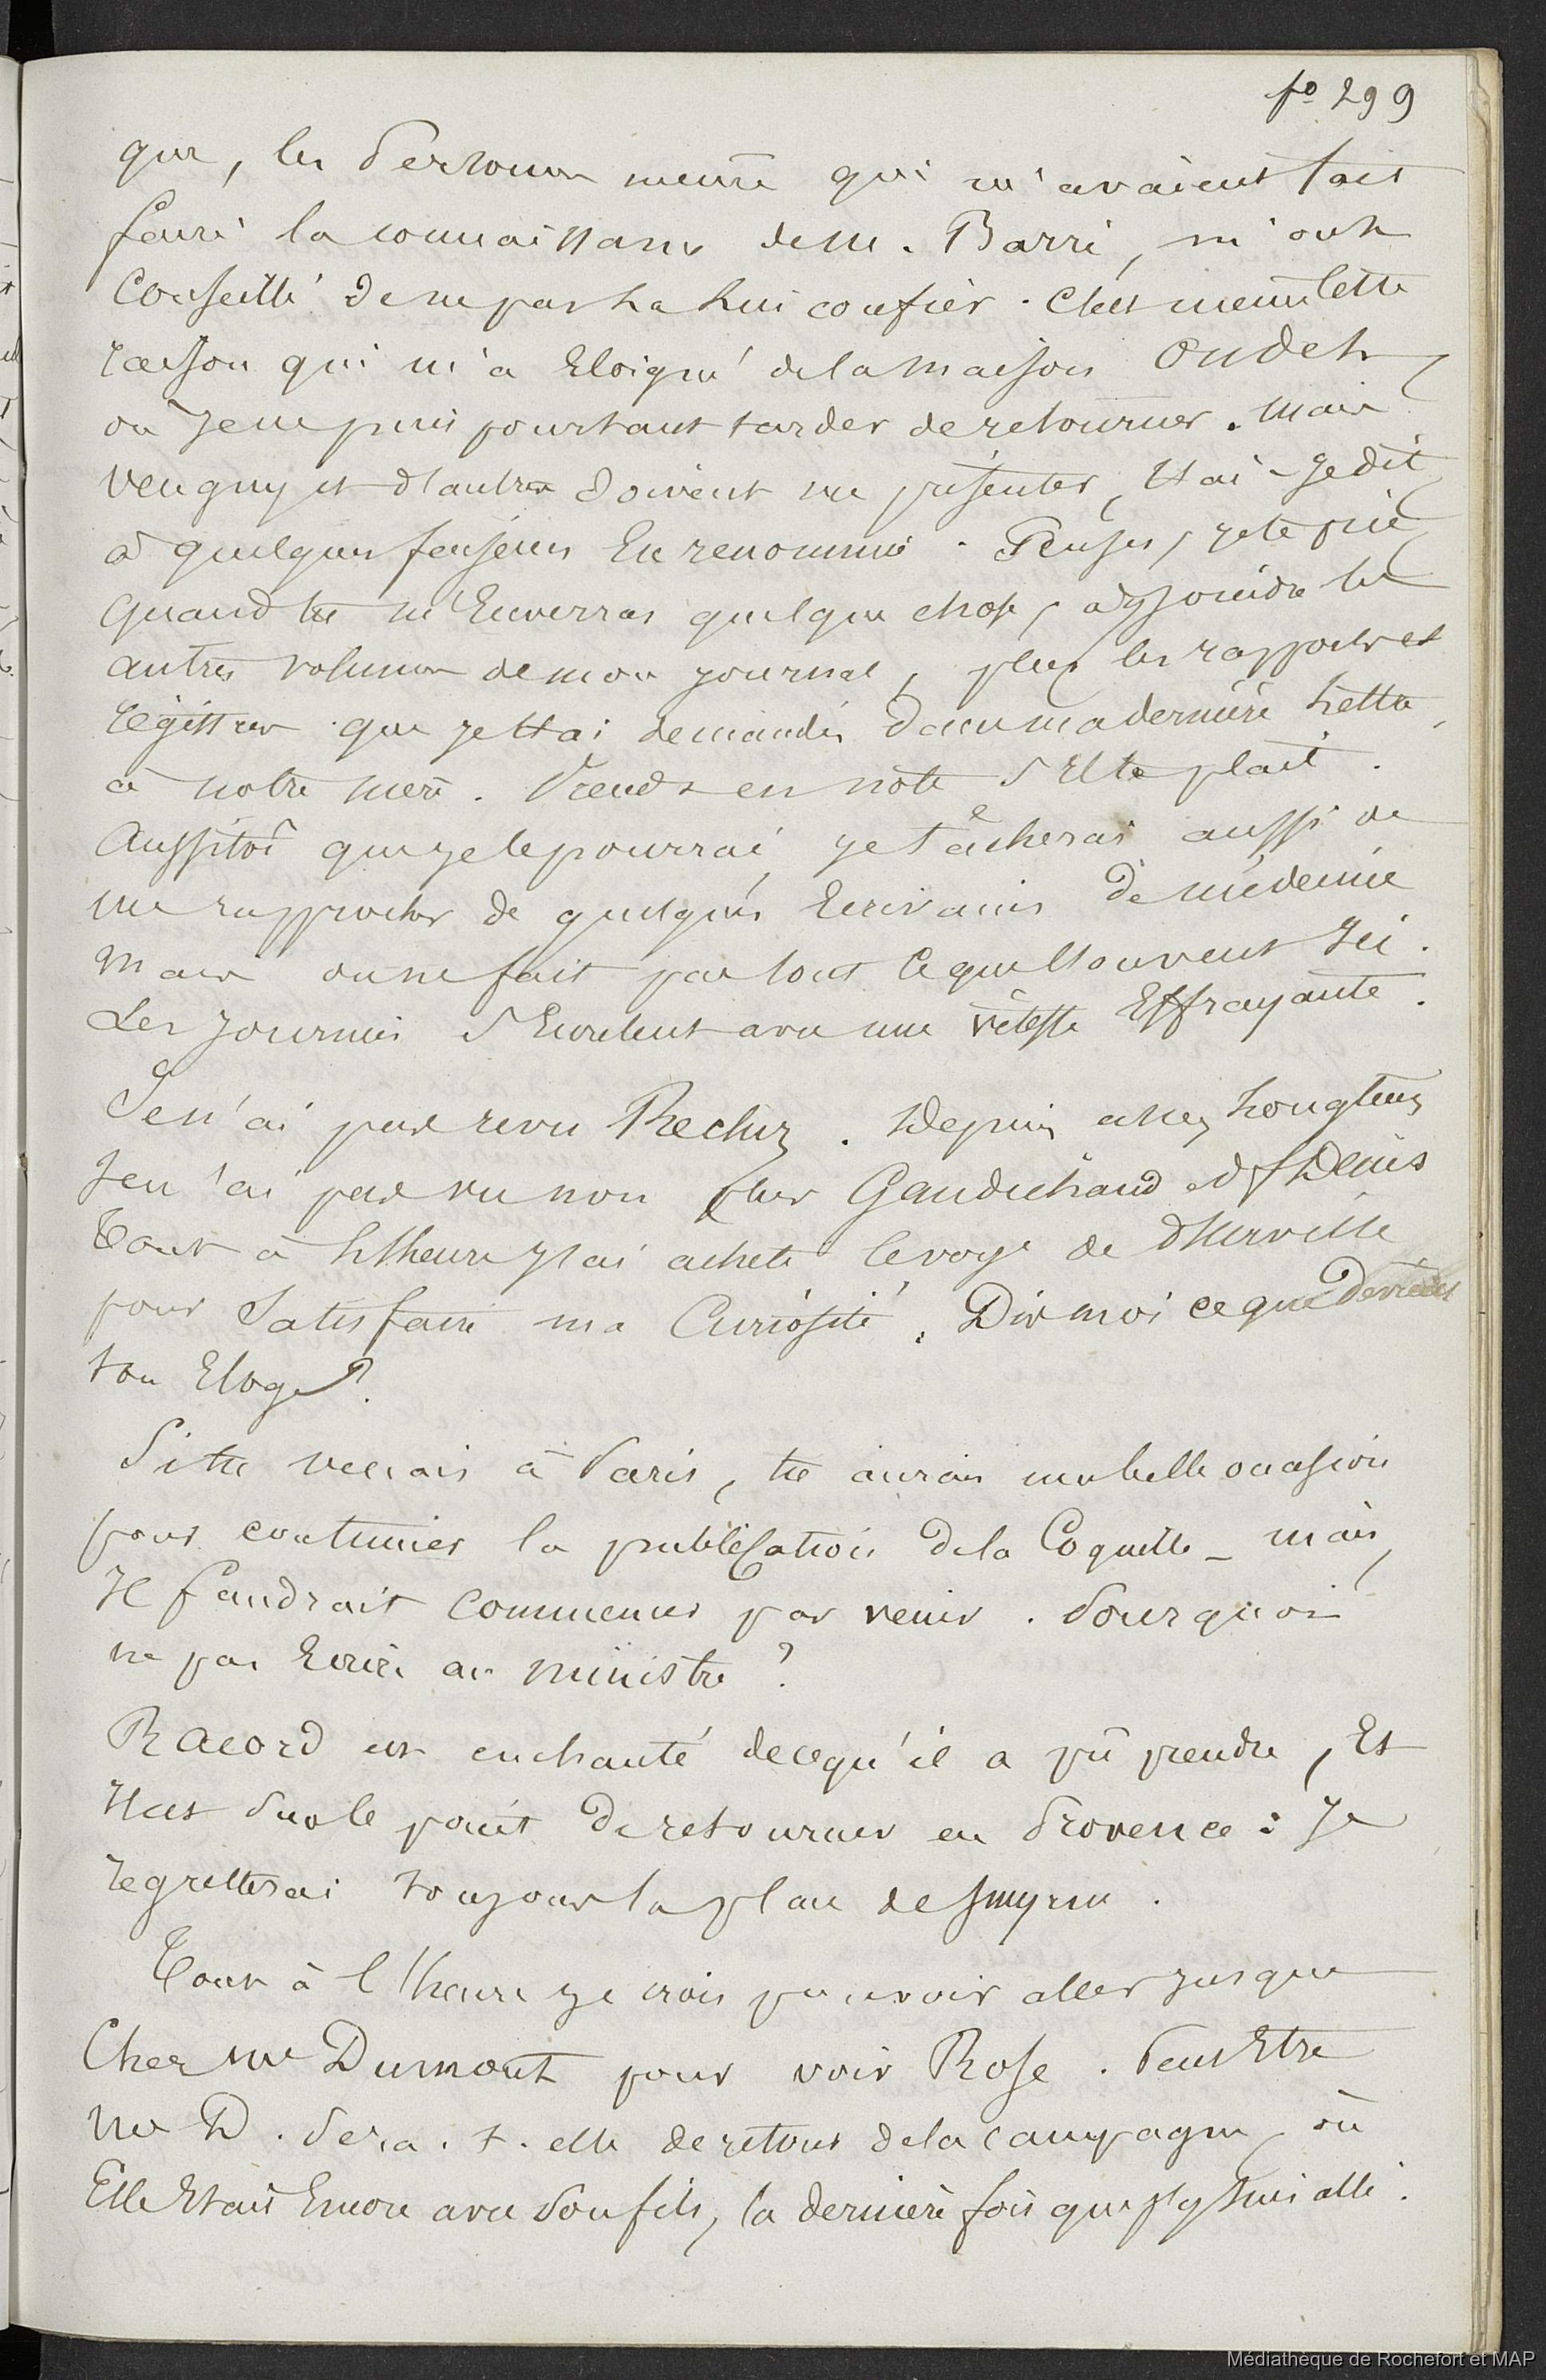 fo 299
que, les Personnes même qui m'avaient fait
faire la connaissance de M. Barré, m'ont
Conseillé de ne pas la lui confier. C'est même cette
raison qui m'a Eloigné de la maison Oudet
où Je ne puis pourtant tarder de retourner. Mais
et d'autres doivent me présenter, t'ai-Je dit
à quelques faiseurs En renommée. Penses, je te prie
quand tu m'Enverras quelque chose, à y joindre les
autres volumes de mon journal, plus les rapports et
régistres que je t'ai demandés dans ma dernière Lettre
à notre mère. Prends en note S'Il te plait.
Aussitôt que je le pourrai, je tâcherai aussi de
me rapprocher de quelques Ecrivains de médecine
Mais on ne fait pas tout ce que l'on veut Ici.
Les Journées S'Ecoulent avec une vitesse Effrayante.
Je n'ai pas revu Recluz. Depuis assez Longtems
Je n'ai pas vu non plus Gaudichaud et f Denis
Tout à l'heure J'ai acheté le voye de d'Urville
pour Satisfaire ma Curiosité. Dis moi ce que devient
ton Eloge?
Si tu venais à Paris, tu aurais une belle occasion
pour continuer la publication de la Coquille - mais,
Il faudrait commencer par venir. Pourquoi
ne pas Ecrire au ministre?
Racord est enchanté de ce qu'il a pû prendre, Et
Il est Sur le point de retourner en Provence : Je
regretterai toujours la place de Smyrne.
Tout à l'heure je crois pouvoir aller jusque
Chez Me Dumont pour voir Rose. Peut Etre
Me D. Sera.t.elle de retour de la campagne, où
Elle Etait Encore avec Son fils, la dernière fois que j'y Suis allé.
Médiathèque de Rochefort et MAP